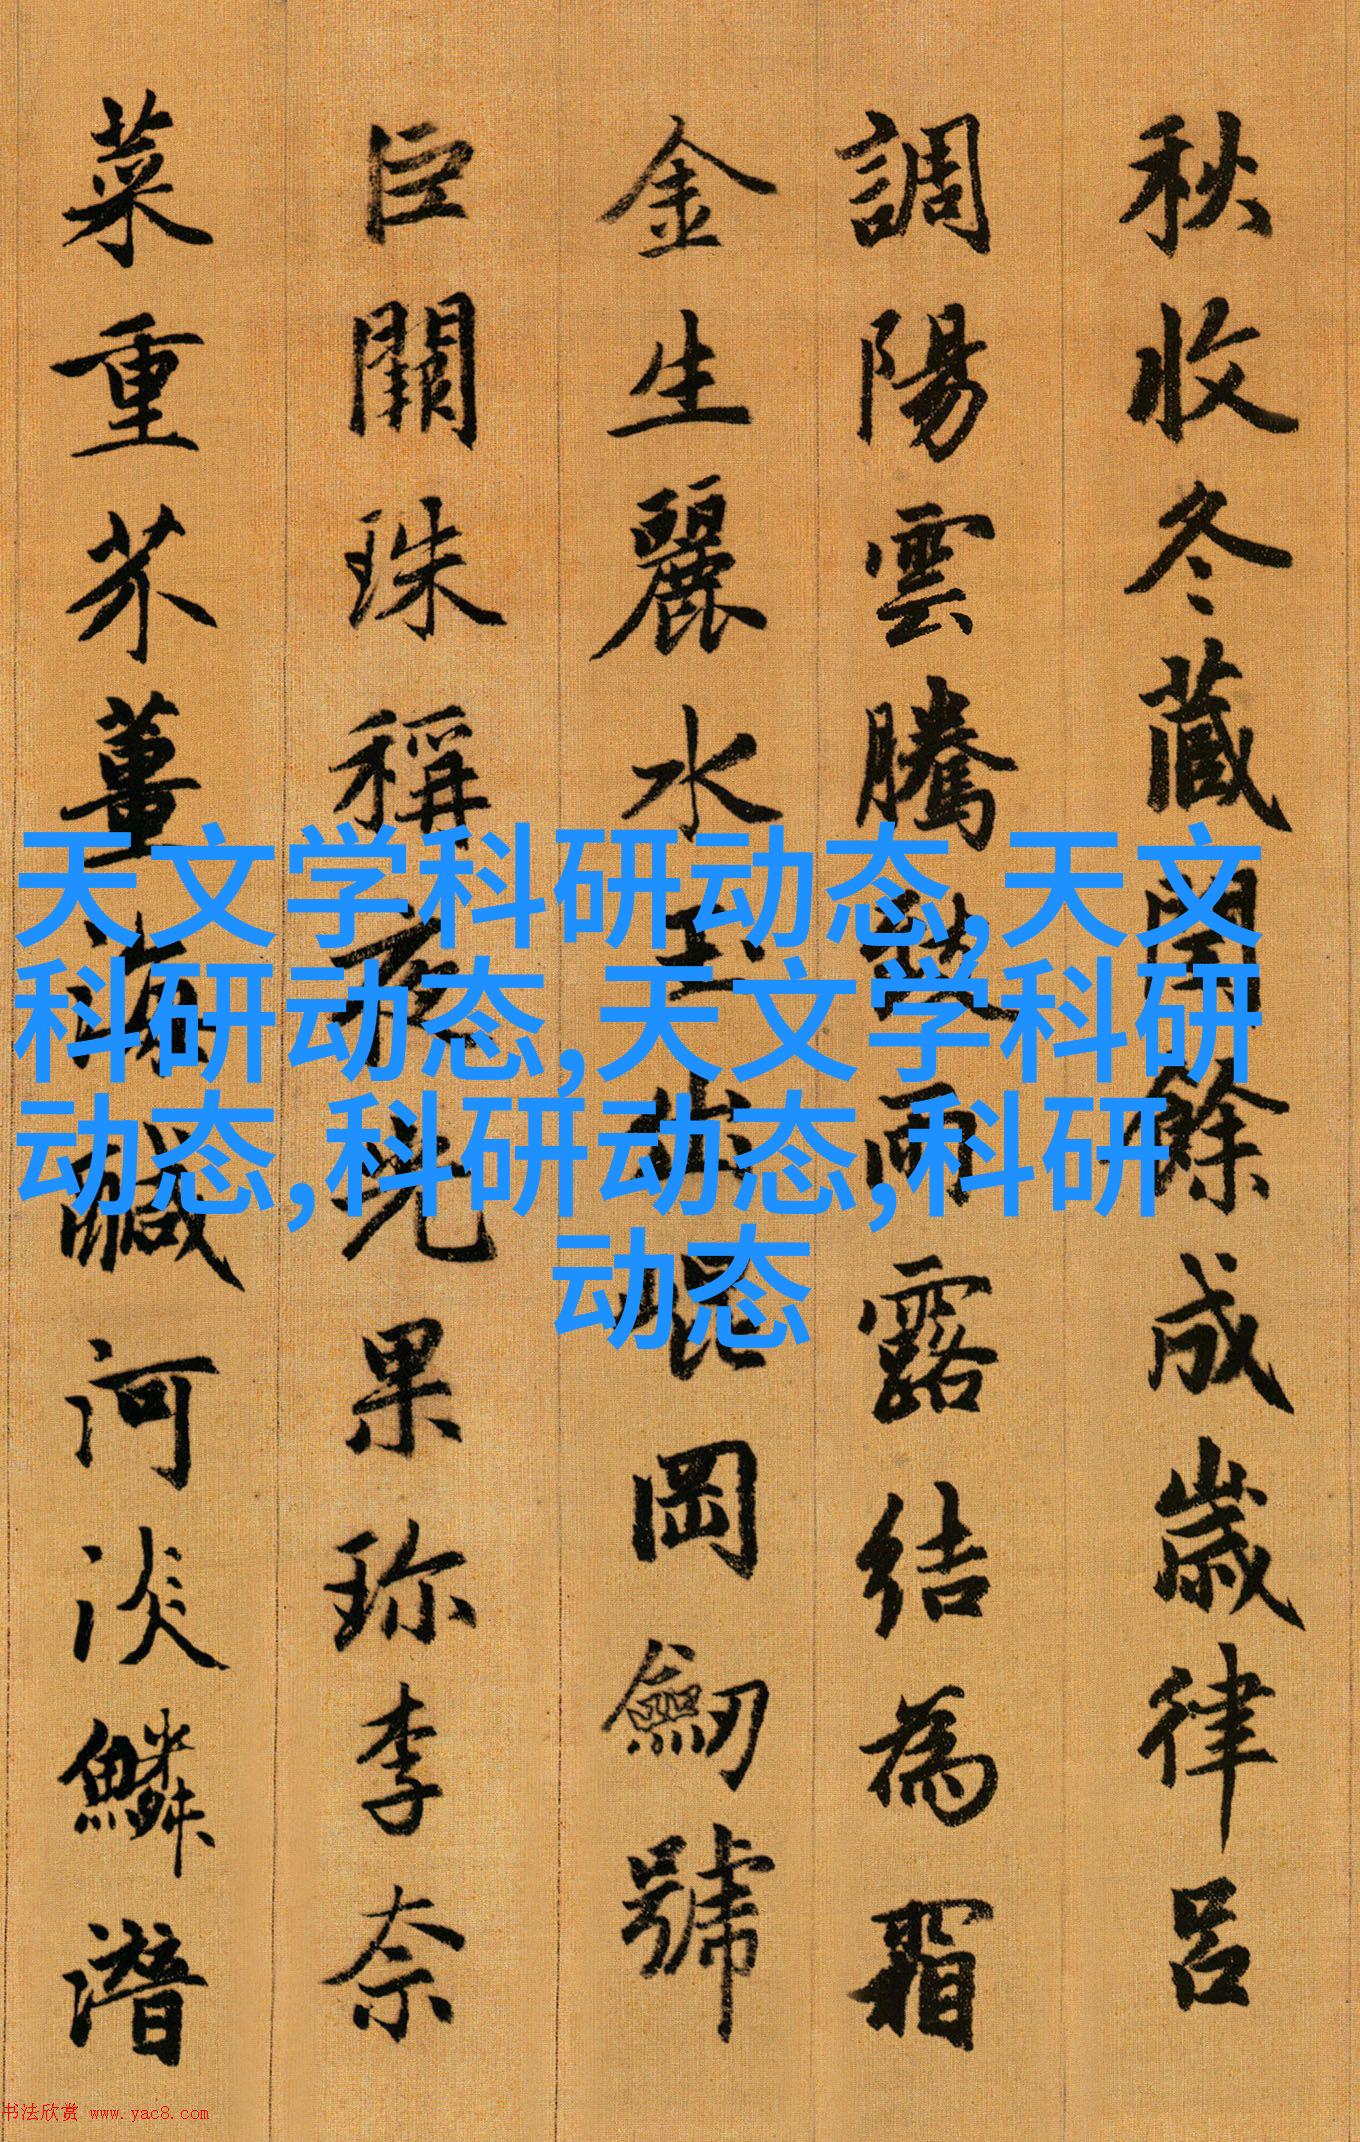 秋收冬藏閏餘成歲律呂
調陽雲騰致雨露結為霜
金生麗水玉出崐岡劒號
巨闕珠稱夜光果珎李柰
菜重芥薑海鹹河淡鱗潛
天文学科研动态,天文
科研动态,天文学科研
动态,科研动态,科研
动态
书法欣赏 www.yac8.com